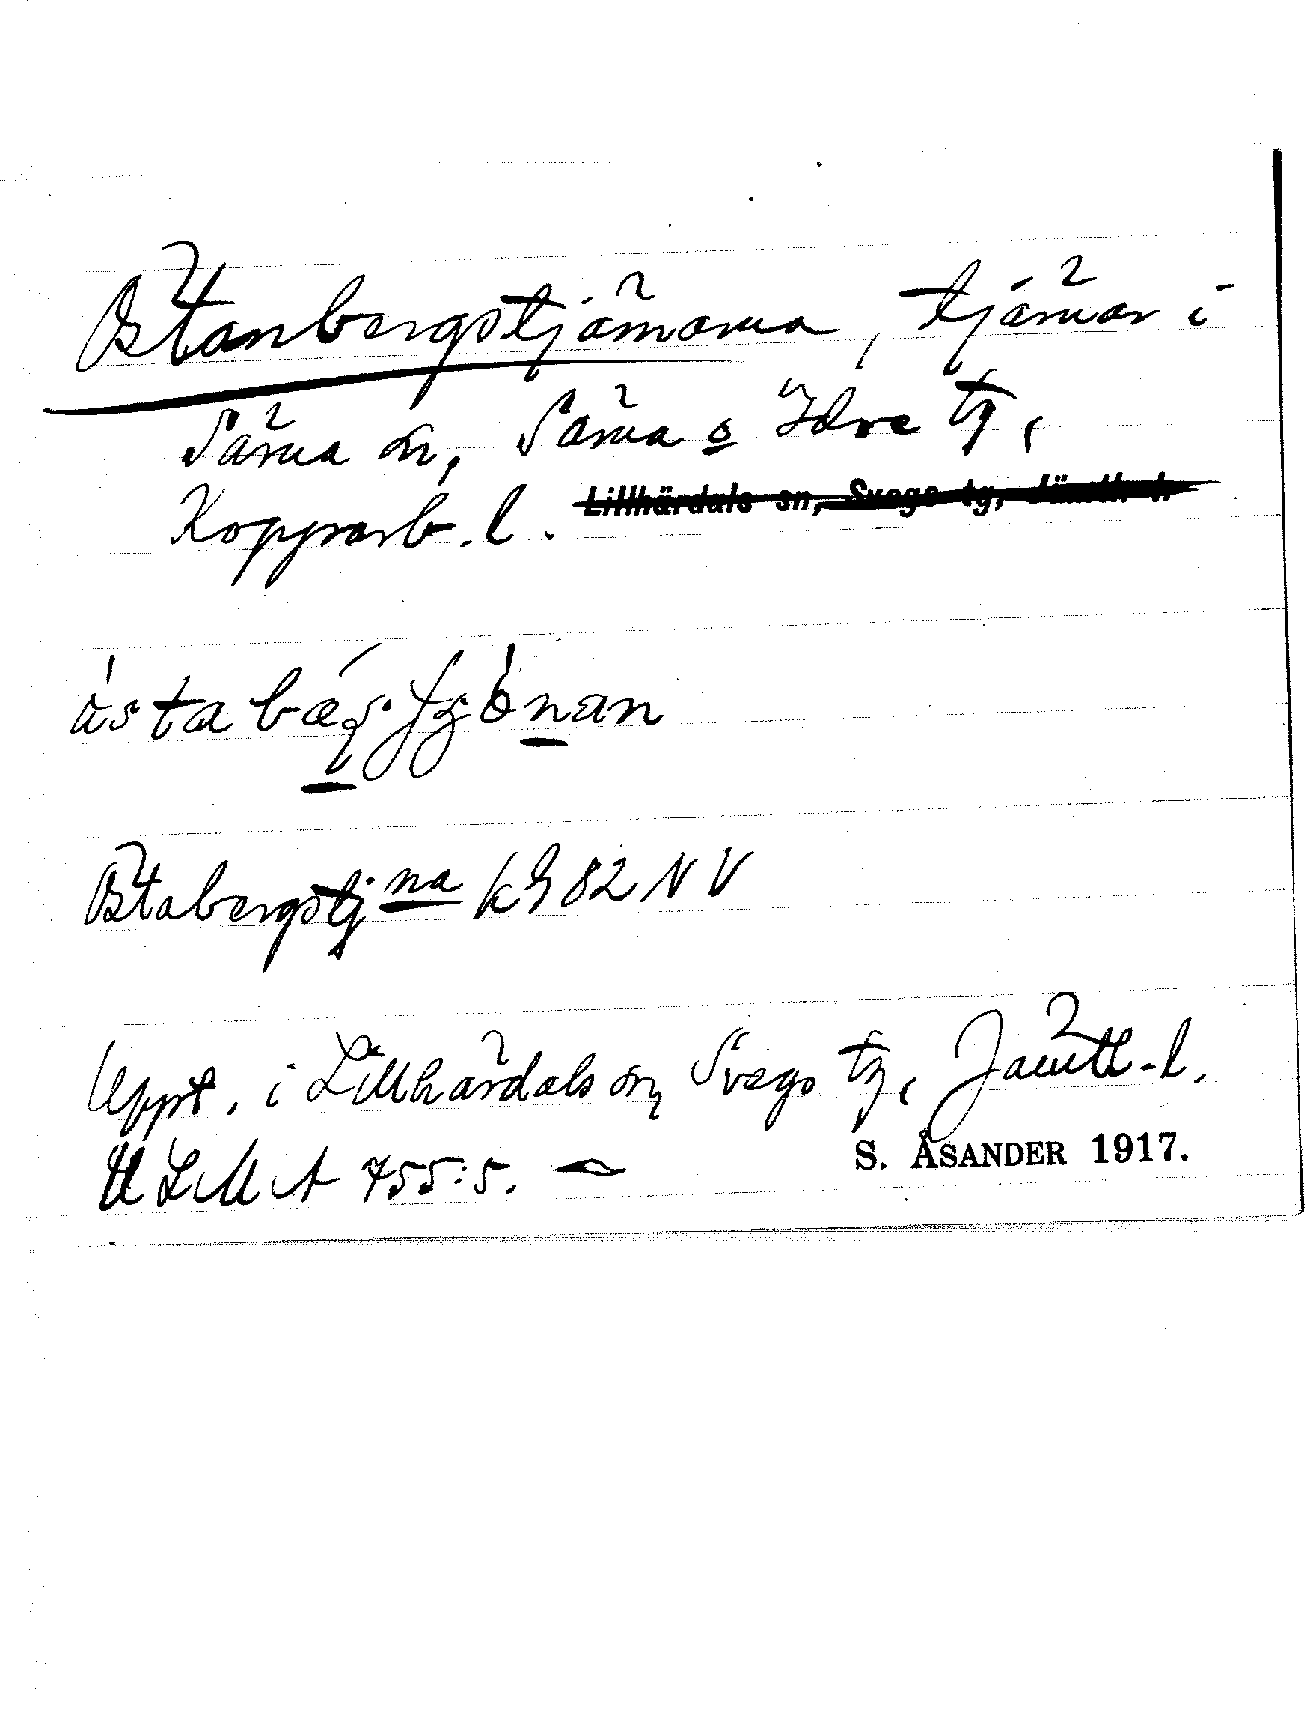 Östanbergstjärnarna, tjärnar i
Särna sn, Särna o Idre tg,
Kopparb. l. Lillhärdals sn, Svegs tg, Jämtl. l.
Östabergstj na kG 82 NV
Uppt. i Lillhärdals sn, Svegs tg, Jämtl. l.
ULMA 755:5. S. ÅSANDER 1917.